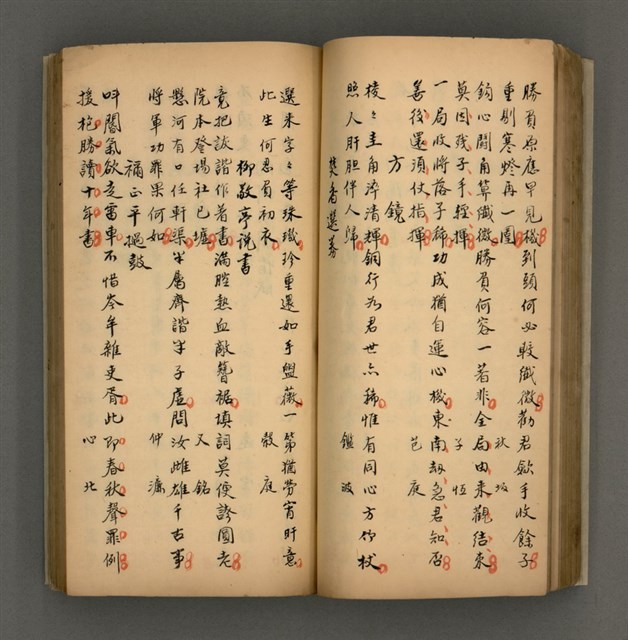 勝負原應早見機到頭何必較纖微勸君歛手收餘子
重剔寒燈再一圍　秋坂
鈎心鬪角算纖微勝負何容一著非全局由來觀結束
莫因殘子手輕揮　子恆
一局收將落子稀功成猶自運心機東南劫急君知否
善後還須仗指揮　芭庭
方鏡
稜々圭角淬清輝銅行為君世亦稀惟有同心方竹杖
照人肝胆伴人歸　鑑波
焚香選募
選來字々等珠璣珍重還如手盥薇一第猶勞宵旰意
此生何忍負初衣　殼庭
柳敬亭說書
竟把詼諧作著書滿腔熱血敵簪裾填詞莫便誇圓老
院本登場社已墟　又銘
懸河有口任軒渠半屬齊諧半子虛問汝雌雄千古事
將軍功罪果何如　仲濂
禰正平撾鼓
呌闔氣欲走雷車不惜岑牟雜吏胥此即春秋聲罪例
援枹勝讀十年書　心北